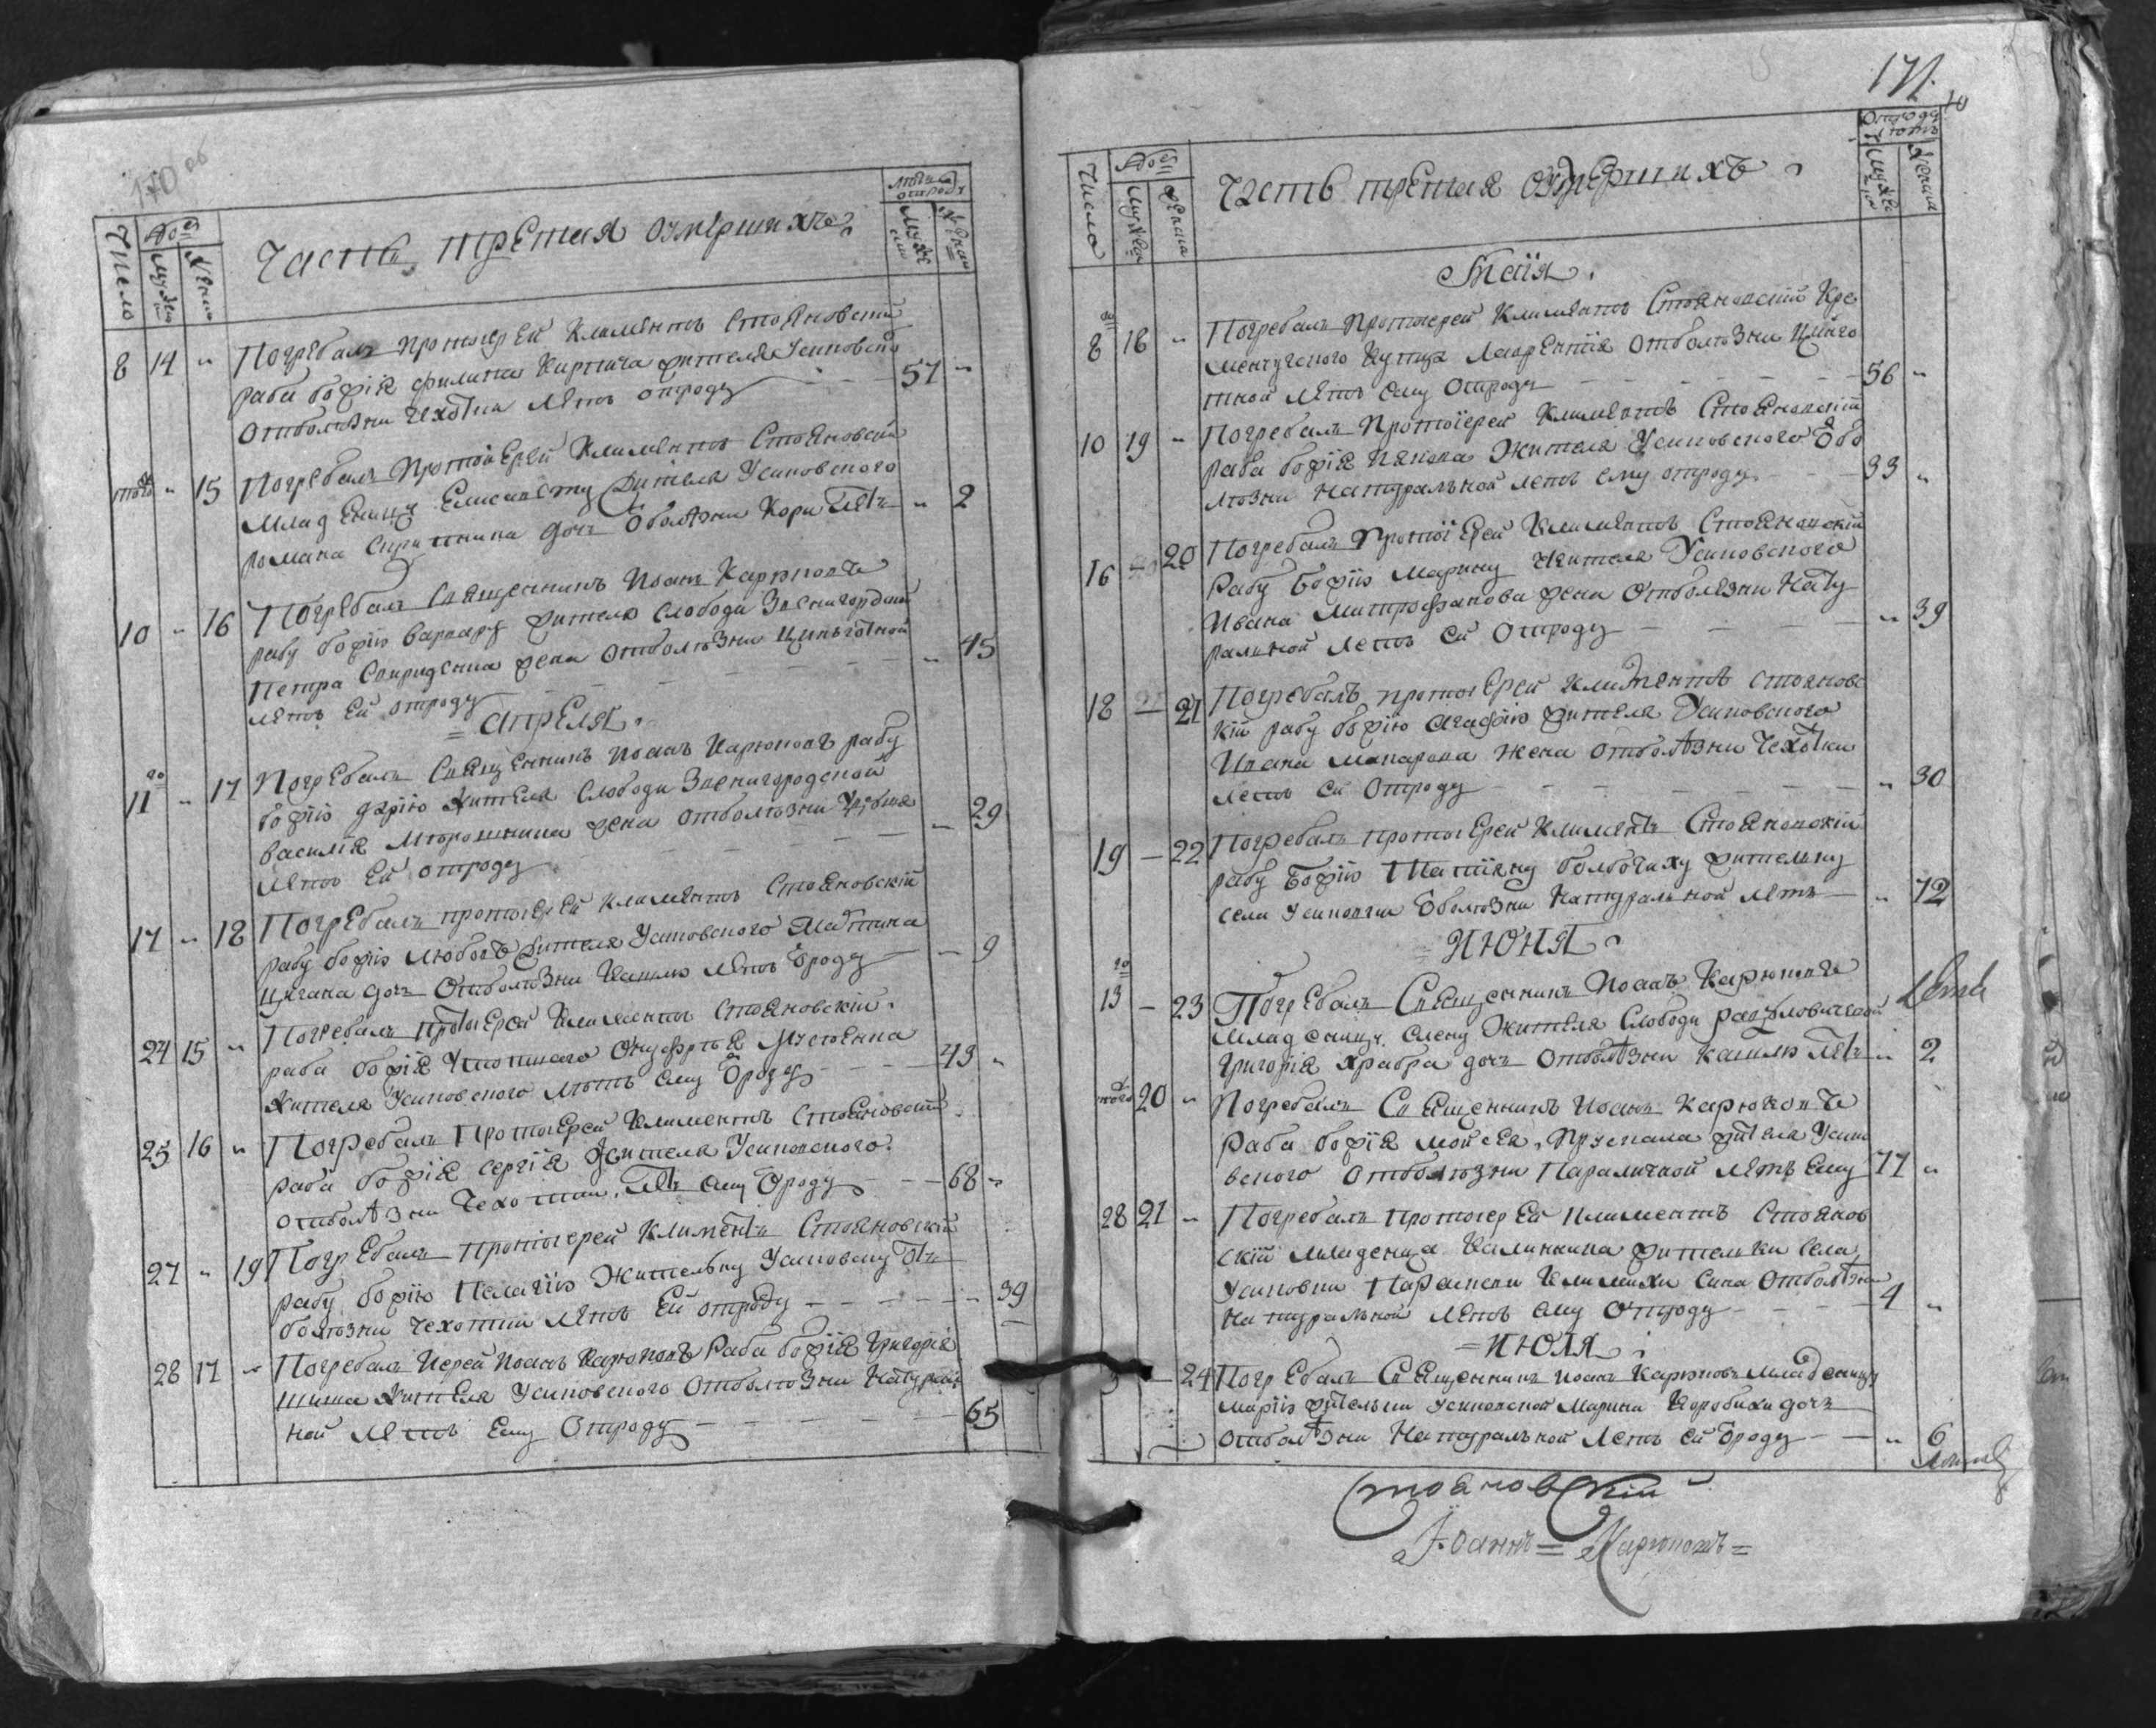 170 об
Число
Мужес
Женск
Часть третия омершихъ
Лета отроду
Мужес
Женск
8 14 " Погребалъ протоиерей Климентъ Стояновский
раба божія филипа Кирпича жителя Усиповск
отболезни чехотки летъ отроду 57 "
того " 15 Погребалъ Протоиерей Климентъ Стояновски
Младеница Елисавету жителя Усиповского
романа дочъ Оболезни Кори летъ " 2
10 " 16 Погребалъ Священникъ Иоанъ Карюповъ
рабу божію варвару жителя слободи Звенигородской
Петра Спиридена жена отболезни цинъготной
летъ Ей отроду " 45
= апреля
11 " 17 Погребалъ Священникъ Иоанъ Карюповъ рабу
божію дарію жителя Слободи Звенигородской
василія Мирошника жена отболезни
летъ Ей отроду " 29
17 " 18 Погребалъ протоиерей Климентъ Стояновскій
рабу божію любовъ жителя Усиповского
цигана дочъ Отболезни Кашлю летъ Ероду 9
24 15 " Погребалъ протоиерей Климентъ Стояновскій
раба божія Утопшаго Онуфрия
жителя Усиповского летъ ему Ѿроду 43 "
25 16 " Погребалъ Протоиерей Климентъ Стояновский
раба божія сергія жителя Усиповского
отболезни Чехотки, летъ ему Ѿроду 68 "
27 " 19 Погребалъ протоиерей Климентъ Стояновскій
рабу божію Пелагію Жителъку Усиповску Отъ
болезни чехотки летъ Ей отроду 39
28 17 " Погребалъ Иерей Иоанъ Карюповъ Раба божія Григорія
шиша жителя Усиповского Отболезни Натурал
ной летъ Ему Отроду 65
171.
10
Число
Мужес
Женска
Часть третия Омершихъ
Отрода летъ
Мужес
Женска
Маія.
8 18 " Погребалъ Протоиерей Климентъ Стояновский Кре
менчугского купца Лаврентія отболезни Цинго
тной летъ ему Отроду 56 "
10 19 " Погребалъ Протоіерей Климентъ Стояновскій
раба божія Якова Жителя Усиповского Ѿбо
лезни Натуралъной летъ ему отроду 33 "
16 20 Погребалъ Протоіерей Климентъ Стояновскій
Рабу Божію Марину Жителя Усиповского
Ивана Митрофанова жена Отболезни Нату
ралной летъ Ей Отроду " 39
18 21 Погребалъ протоиерей Климентъ стояновс
кій рабу божію Агафію жителя Усиповского
Ивана Макарова жена отболезни Чехотки
летъ Ей Отроду " 30
19 22 Погребалъ протоиерей Климентъ Стояновскій
рабу Божію Татіяну болбочиху жителъку
села Усиповки Ѿболезни Натуралъной летъ " 72
= ИЮНЯ
13 23 Погребалъ Священникъ Иоанъ Карюповъ
Младеницу Елену Жителя Слободи
Григорія храбра дочъ отболезни Кашлю летъ " 2
того 20 " Погребалъ Священникъ Иоанъ Карюповъ
Раба божія мойсея жителя Усипо
вского отболезни Параличной летъ Ему 77 "
28 21 " Погребалъ протоиерей Климентъ Стоянов
скій младенца Калинника жителъки Села
Усиповки Параскеви Климихи Сина Отболезни
натуралъной летъ ему Отроду 4 "
= ИЮЛЯ
3 24 Погребалъ Священникъ Иоанъ Карюповъ Младеницу
марію жителъки Усиповской Марини Коробкихи дочъ
отболезни Натуралъной летъ ей Ѿроду " 6
Стояновскій
Іоаннъ = Карюповъ =